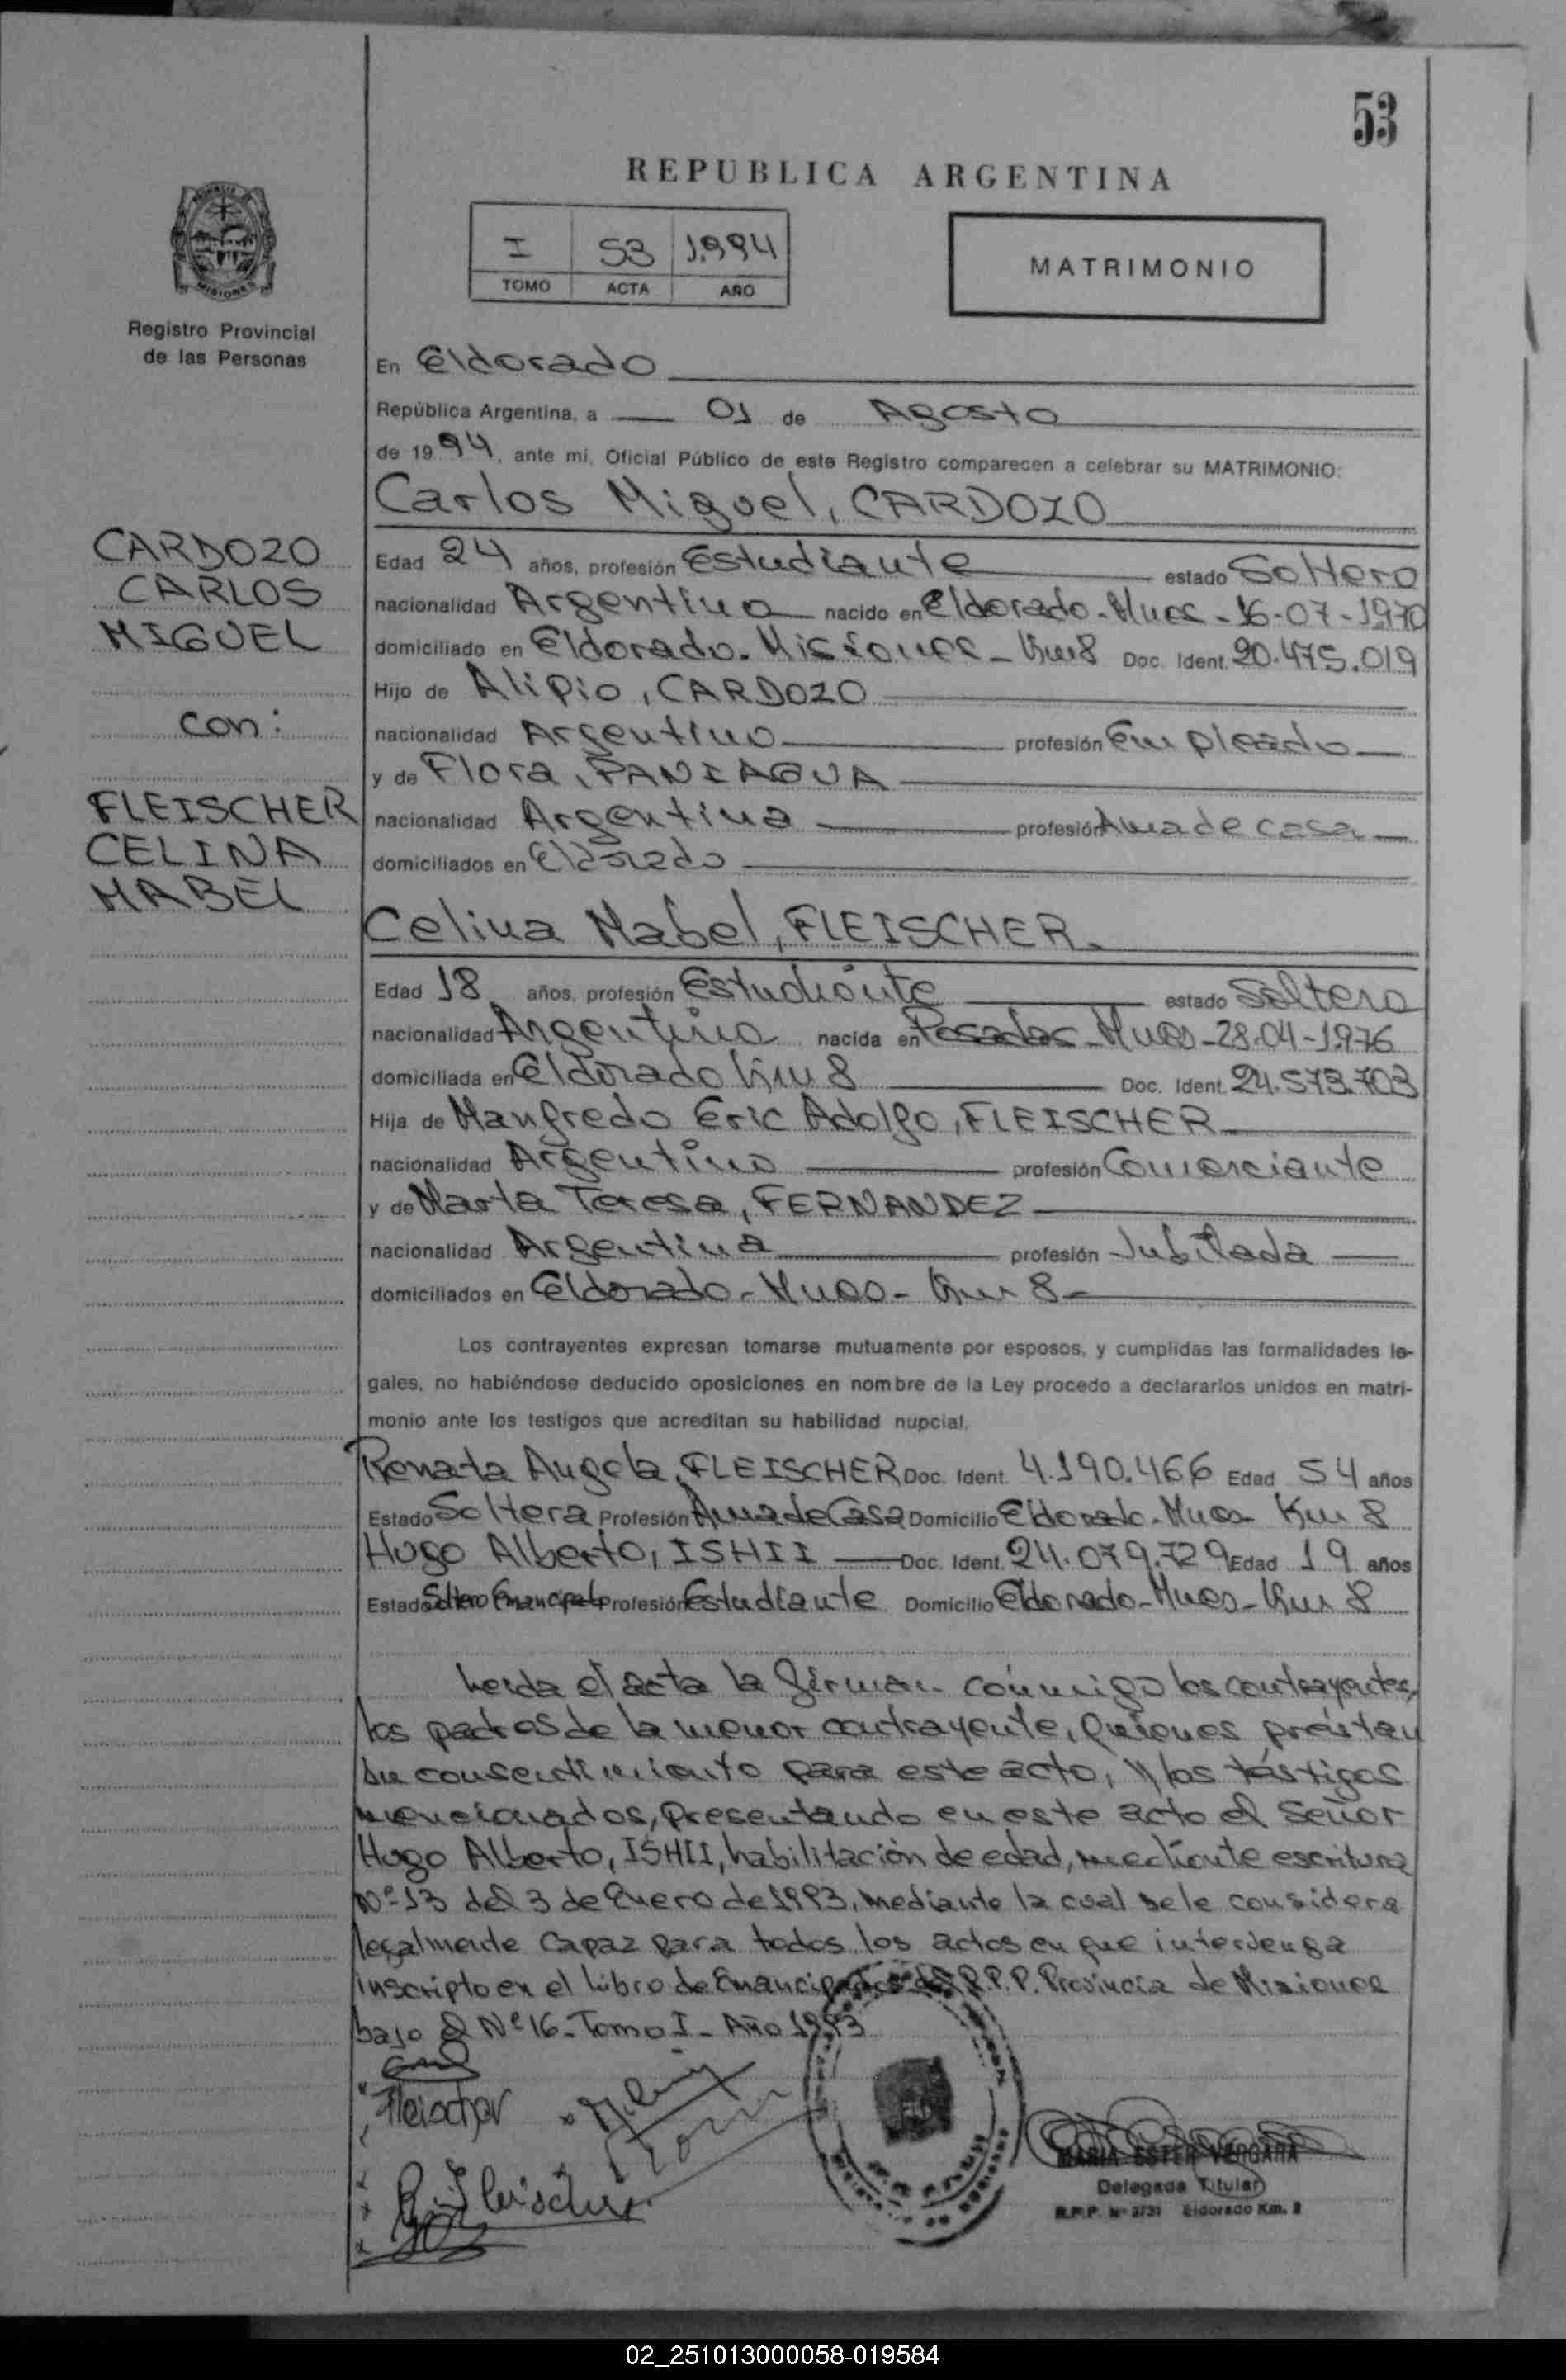 53
REPUBLICA ARGENTINA
I 53 1.994
TOMO ACTA AÑO
MATRIMONIO
MISIONES
Registro Provincial
de las Personas
En Eldorado
República Argentina, a 01 de Agosto
de 1994, ante mi, Oficial Público de este Registro comparecen a celebrar su MATRIMONIO:
Carlos Miguel, CARDOZO
CARDOZO
CARLOS
MIGUEL
con:
FLEISCHER
CELINA
MABEL
Edad 24 años, profesión Estudiante estado Soltero
nacionalidad Argentino nacido en Eldorado-Mnes-16-07-1970
domiciliado en Eldorado-Misiones-Km8 Doc. Ident. 20.475.019
Hijo de Alipio, CARDOZO
nacionalidad Argentino profesión Empleado
y de Flora, PANIAGUA
nacionalidad Argentina profesión Ama de casa
domiciliados en Eldorado
Celina Mabel, FLEISCHER
Edad 18 años, profesión Estudiante estado Soltera
nacionalidad Argentina nacida en Posadas-Mnes-28-04-1.976
domiciliada en Eldorado Km 8 Doc. Ident. 24.573.703
Hija de Manfredo Eric Adolfo, FLEISCHER
nacionalidad Argentino profesión Comerciante
y de Marta Teresa, FERNANDEZ
nacionalidad Argentina profesión Jubilada
domiciliados en Eldorado-Mnes-Km 8-
Los contrayentes expresan tomarse mutuamente por esposos, y cumplidas las formalidades le-
gales, no habiéndose deducido oposiciones en nombre de la Ley procedo a declararlos unidos en matri-
monio ante los testigos que acreditan su habilidad nupcial.
Renata Angela, FLEISCHER Doc. Ident. 4.190.466 Edad 54 años
Estado Soltera Profesión Ama de Casa Domicilio Eldorado-Mnes Km 8
Hugo Alberto, ISHII Doc. Ident. 24.079.729 Edad 19 años
Estado Soltero Emancipado Profesión Estudiante Domicilio Eldorado-Mnes-Km 8
Leida el acta la firman conmigo los contrayentes,
los padres de la menor contrayente, quienes prestan
su consentimiento para este acto, y los testigos
mencionados, presentando en este acto el Señor
Hugo Alberto, ISHII, habilitación de edad, mediante escritura
Nº 13 del 3 de Enero de 1993, mediante la cual se le considera
legalmente capaz para todos los actos en que intervenga
inscripto en el libro de Emancipados del R.P.P. Provincia de Misiones
bajo el Nº 16-Tomo I-Año 1993
Fleischer
R. Fleischer
MARIA ESTER VERGARA
Delegada Titular
R.P.P. Nº 2731 Eldorado Km. 2
02_251013000058-019584